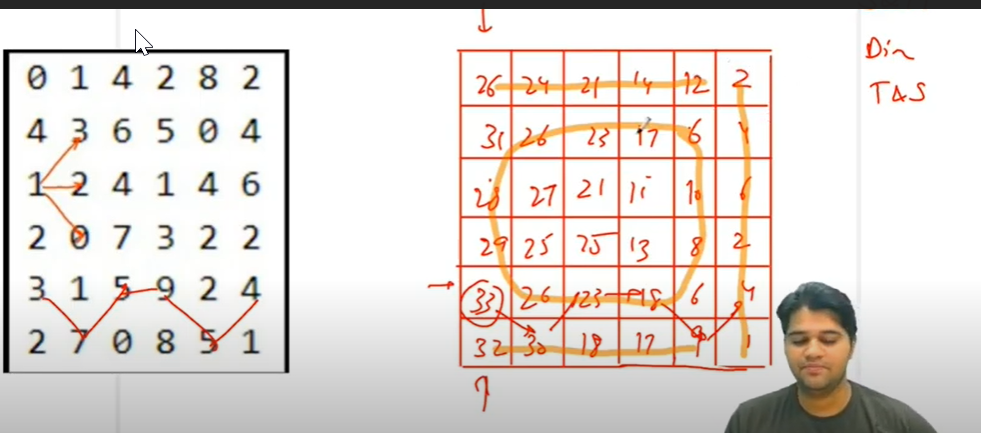 0 1 4 2 8 2
4 3 6 5 0 4
1 2 4 1 4 6
2 0 7 3 2 2
3 1 5 9 2 4
2 7 0 8 5 1
26 24 21 14 12 2
31 26 23 17 6 4
28 27 21 11 10 6
29 25 25 13 8 2
33 26 23 18 6 4
32 30 18 17 9 1
Din
TAS